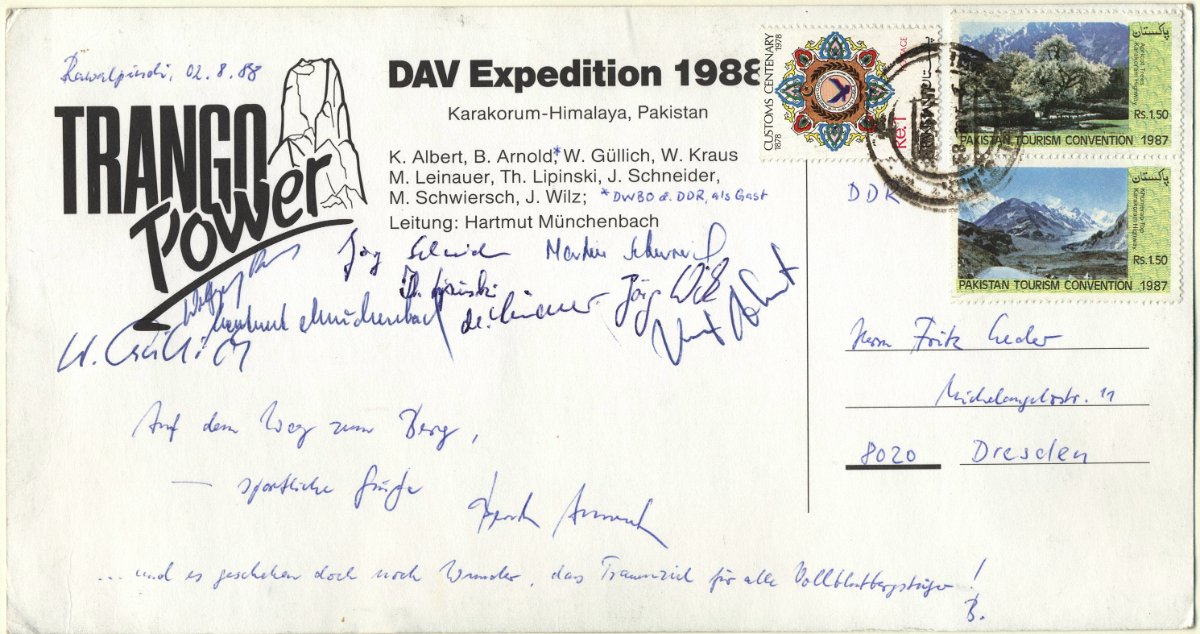 Rawalpindi, 02.8.88
TRANGO
Power
DAV Expedition 1988
Karakorum-Himalaya, Pakistan
K. Albert, B. Arnold,* W. Güllich, W. Kraus
M. Leinauer, Th. Lipinski, J. Schneider,
M. Schwiersch, J. Wilz; *DWBO d. DDR, als Gast
Leitung: Hartmut Münchenbach
Jörg Schneider Martin Schwiersch
Wolfgang Kraus Th. Lipinski
Hartmut Münchenbach M. Leinauer Jörg Wilz
W. Güllich Kurt Albert
Auf dem Weg zum Berg,
– sportliche Grüße
Bernd Arnold
... und es geschehen doch noch Wunder, das Traumziel für alle Vollblutbergsteiger!
B.
CUSTOMS CENTENARY
1878 1978
Re. 1
پاکستان
Apricot Trees
Karakoram Highway
Rs.1.50
PAKISTAN TOURISM CONVENTION 1987
پاکستان
Khunjerab Top
Karakoram Highway
Rs.1.50
PAKISTAN TOURISM CONVENTION 1987
DDR
Herrn Fritz
Michelangelostr. 11
8020 Dresden